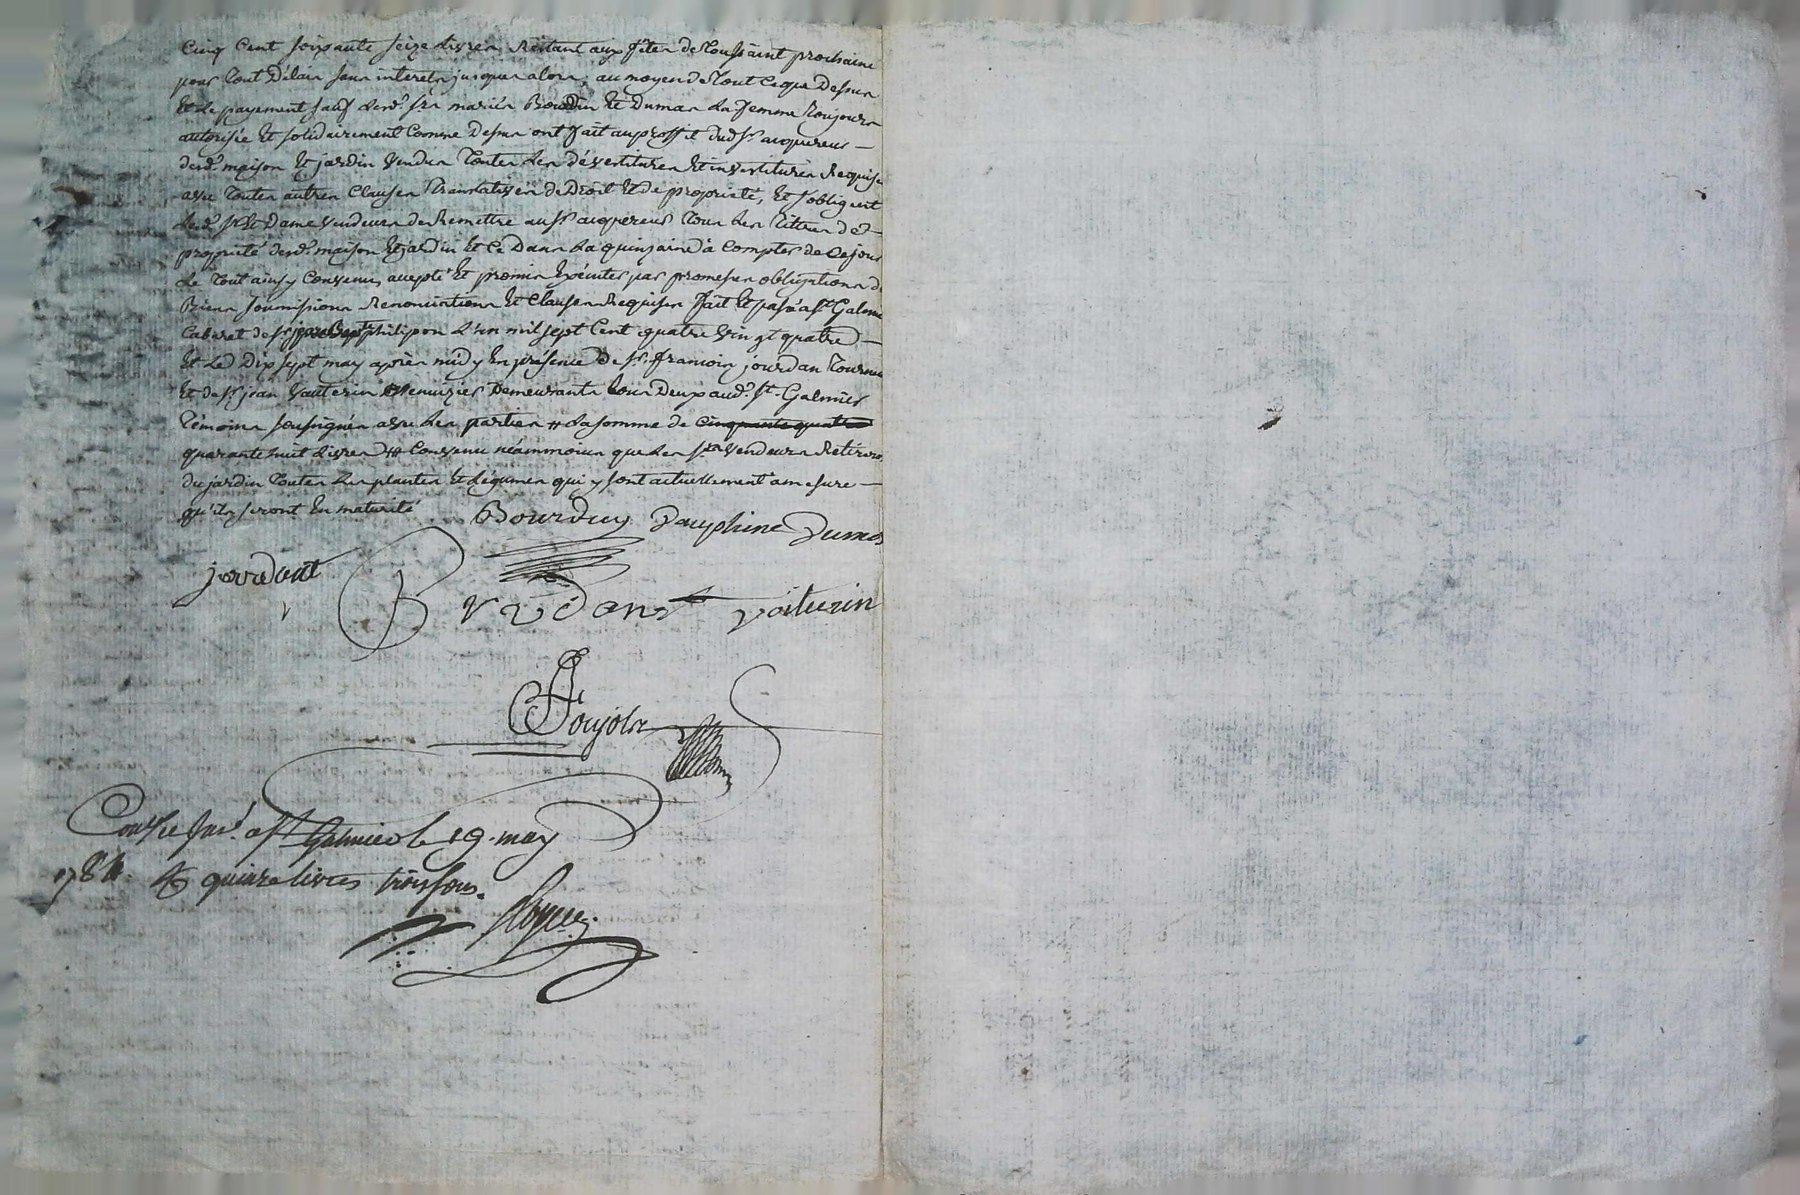 Cinq Cent soixante seize livres Restant aux fêtes de Toussaint prochaine
pour Tout Délais sans interets jusques alors, au moyen de Tout Ceque Dessus
Et de payement sauf lesd. srs mariés Bourdin Et Dumas La femme Toujours
autorisée Et solidairement Comme Dessus ont fait au proffit dud sr. acquereur
desd. maison Et jardin Vendus Toutes Les dévestitures Et investitures Requises
avec Toutes autres Clauses Translatives de Droit Et de propriété, Et s'obligent
lesd. sr. Et Dame Vendeurs de Remettre au sr. acquereur Tous Les Tittres de
propriété desd. maison Et jardin Et Ce Dans La quinzaine à Compter de Ce jour
Le Tout ainsy Convenu, accepté Et promis Exécuter par promesses obligations de
Biens soumissions Renonciations Et Clauses Requises fait Et passé a st. Galmier
Cabaret de sr. jean Bapt. philipon L'an mil sept Cent quatre vingt quatre
Et Le Dix sept may après midy En présence de sr. francois jourdan
Et de sr. jean Vauterin Menuizier Demeurants tous Deux aud. st. Galmier
Témoins soussignés avec Les parties # La somme de cinquante quatre
quarante huit Livres # Convenu néammoins que Les srs. Vendeurs Retireront
du jardin Toutes Les plantes Et Légumes qui y sont actuellement a mesure
qu'ils seront En maturité
Bourdin Dauphine Dumas
jourdant
voiturin
Poujols
Conlle Insé. a st Galmier le 19. may
1784. R quinze livres trois sous.